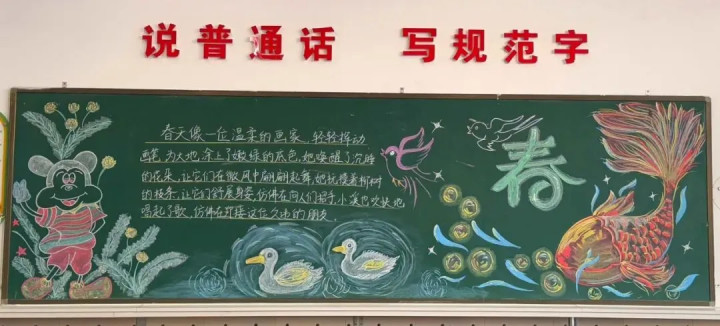 说普通话 写规范字
春天像一位温柔的画家,轻轻挥动
画笔,为大地涂上了嫩绿的底色,她唤醒了沉睡
的花朵,让它们在微风中翩翩起舞,她抚摸着柳树
的枝条,让它们舒展身姿,仿佛在向人们招手,小溪也欢快地
唱起了歌,仿佛在迎接这位久违的朋友。
春